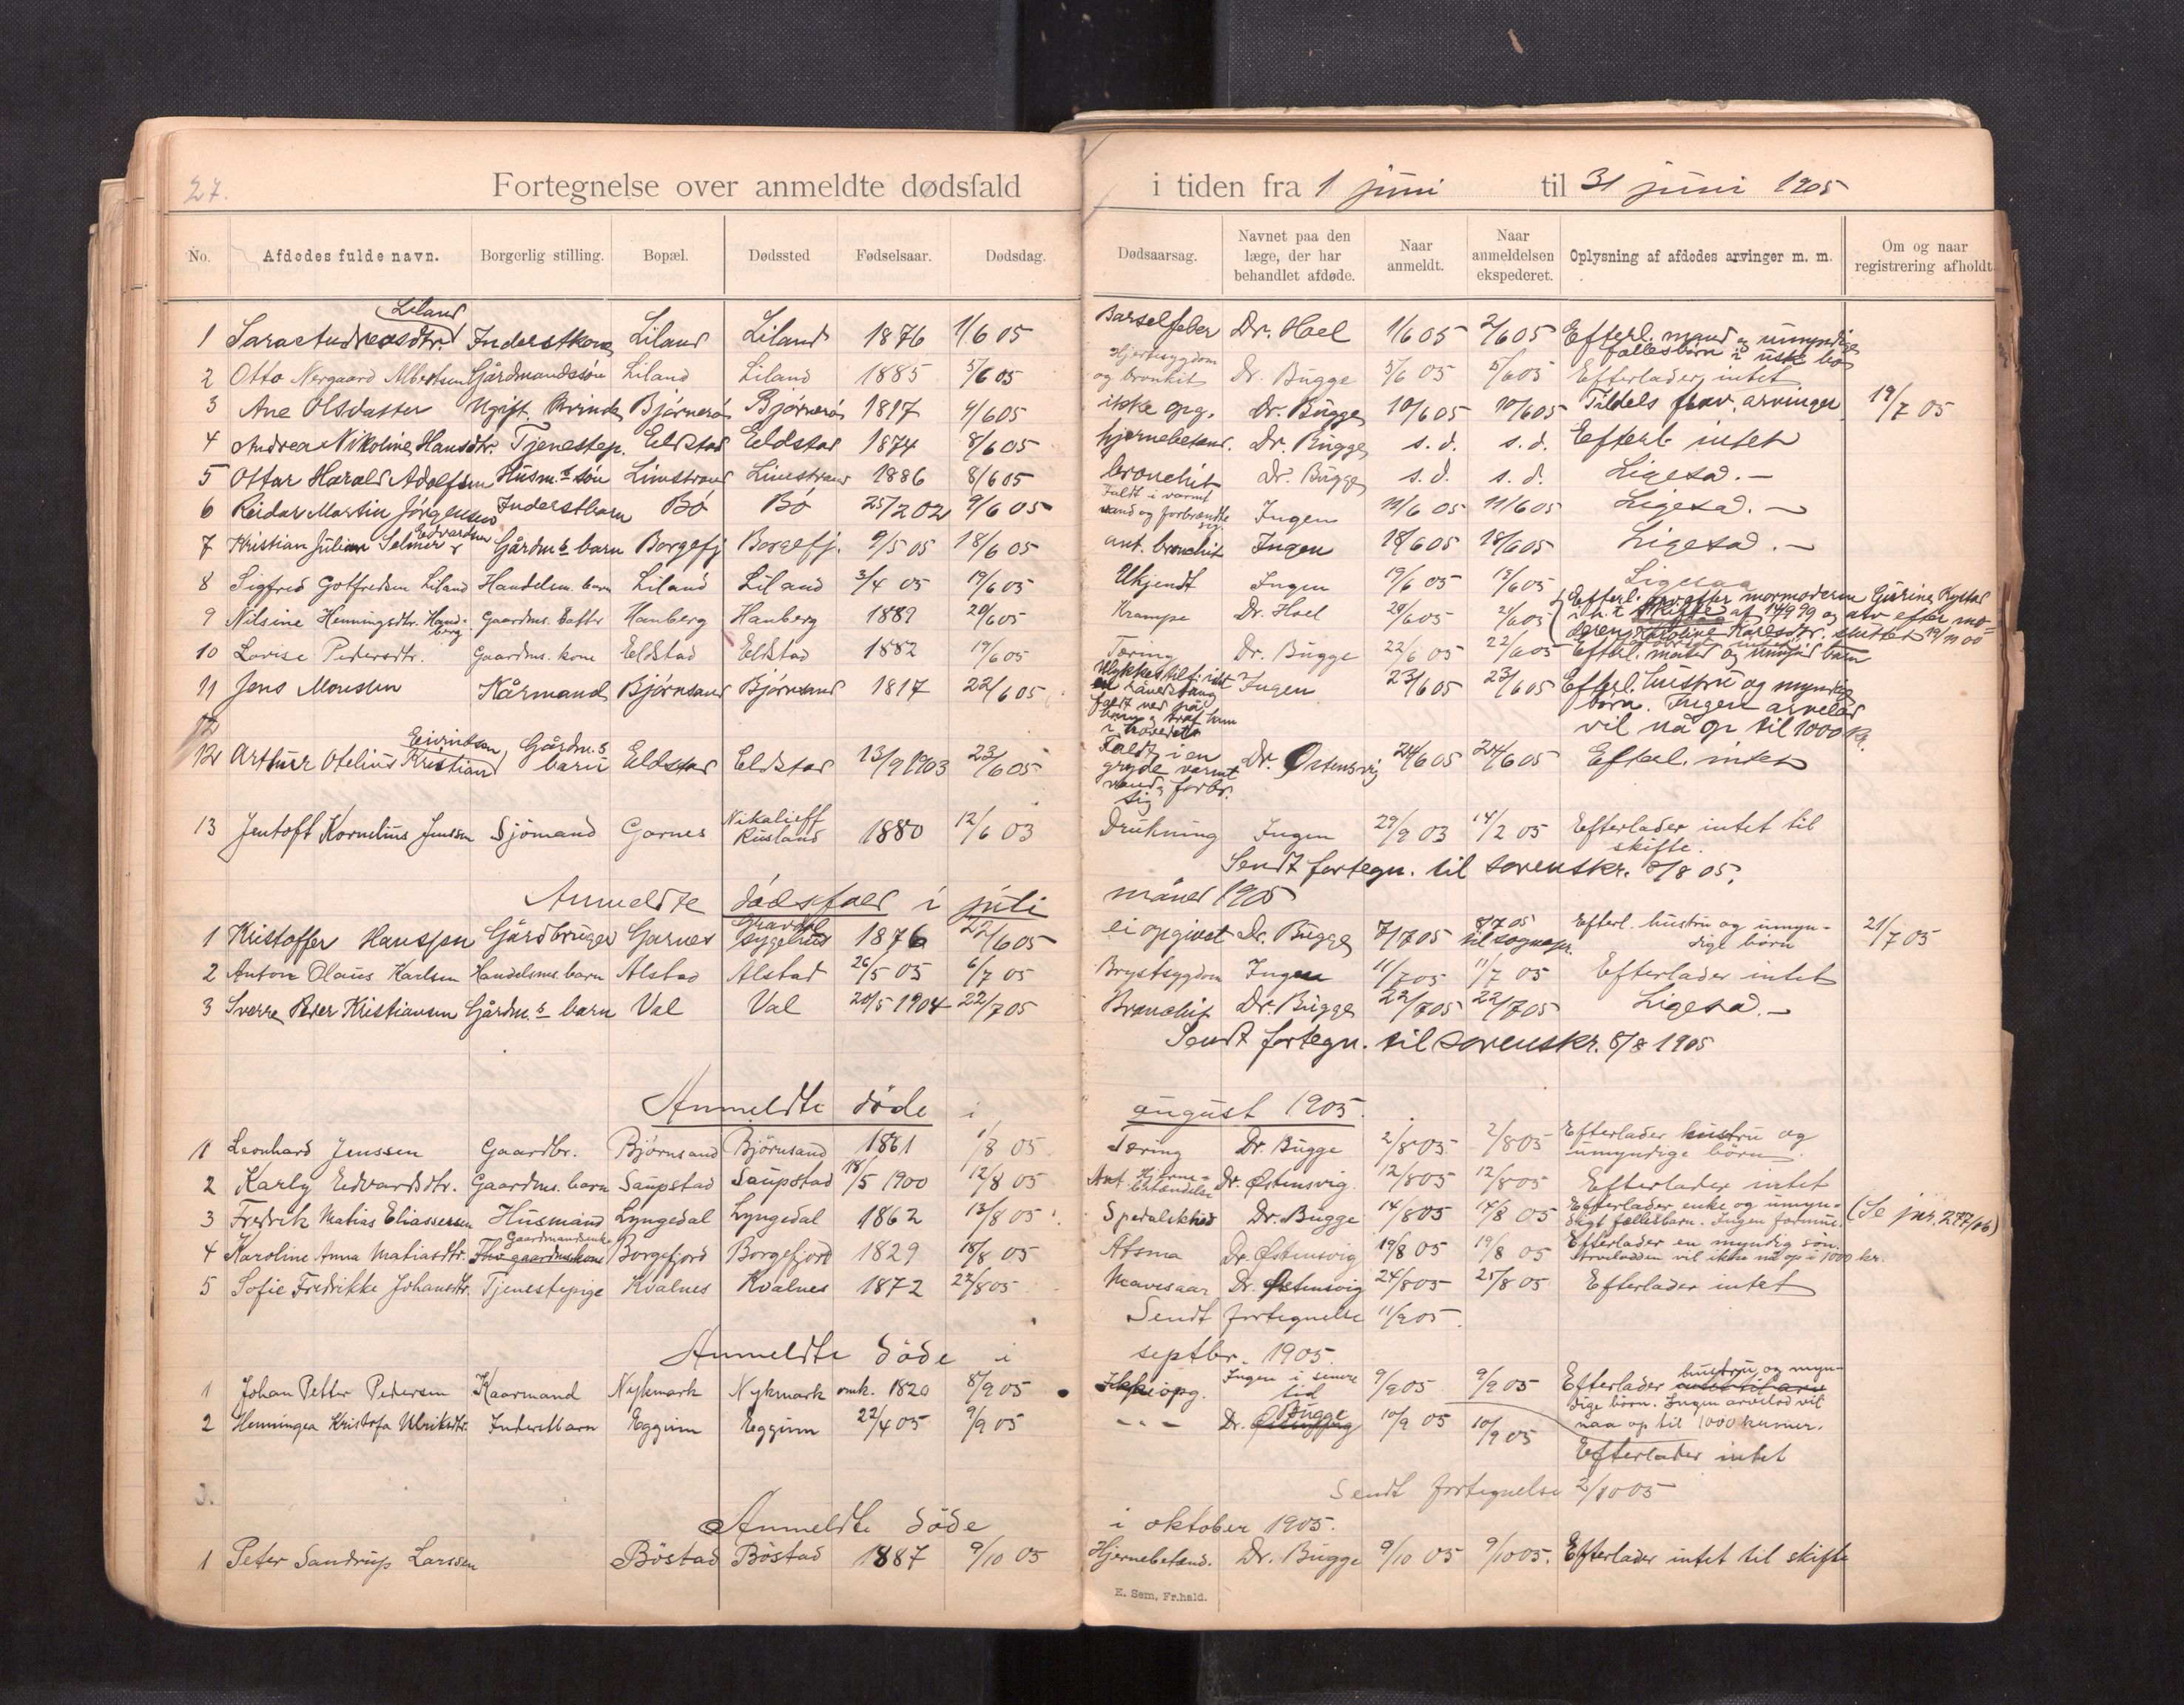 27.
Fortegnelse over anmeldte dødsfald i tiden fra 1 juni til 31 juni 1905
No. Afdødes fulde navn. Borgerlig stilling. Bopæl. Dødssted Fødselsaar. Dødsdag. Dødsaarsag. Navnet paa den læge, der har behandlet afdøde. Naar anmeldt. Naar anmeldelsen ekspederet. Oplysning af afdødes arvinger m. m. Om og naar registrering afholdt
1 Sara Andreasdtr. Liland Inderstkone Liland Liland 1876 1/6 05 Barselfeber Dr. Hoel 1/6 05 2/6 05 Efterl. mand og umyndige fællesbørn i usk. bo
2 Otto Nergaard Albertsen Gårdmandssøn Liland Liland 1885 5/6 05 Hjertesygdom og bronkit Dr. Bugge 5/6 05 5/6 05 Efterlader intet
3 Ane Olsdatter Ugift kvinde Bjørnerå Bjørnerå 1817 4/6 05 ikke opg. Dr. Bugge 10/6 05 10/6 05 Tildels frav. arvinger 19/7 05
4 Andrea Nikoline Hansdtr. Tjenestep. Eldstad Eeldstad 1874 8/6 05 hjernebetend. Dr. Bugge s. d. s. d. Efterl. intet
5 Ottar Harald Adolfsen Husm.s søn Limstrand Limstrand 1886 8/6 05 bronchit Dr. Bugge s. d. s. d. Ligeså. –
6 Reidar Martin Jørgensen Inderstbarn Bø Bø 25/2 02 9/6 05 Faldt i varmt vand og forbrændte sig. Ingen 11/6 05 11/6 05 Ligeså. –
7 Kristian Julian Selmer Edvardsen Gårdm.s barn Borgefj Borgefj. 9/5 05 18/6 05 ant. bronchit Ingen 18/6 05 18/6 05 Ligeså. –
8 Sigfred Gotfredsen Liland Handelsm. barn Liland Liland 3/4 05 19/6 05 Ukjendt Ingen 19/6 05 19/6 05 Ligesaa
9 Nilsine Henningsdtr. Handberg Gaardms. datter Hanberg Hanberg 1889 20/6 05 Krampe Dr. Hoel 20/6 05 21/6 05 Efterl. arv efter mormoderen Gurine Rystad i h. t. skifte af 14/9 99 og arv efter moderen Karoline Karlsdtr. sluttet 19/11 00
10 Lovise Pedersdtr. Gaardms. kone Eeldstad Eldstad 1882 19/6 05 Tæring Dr. Bugge 22/6 05 22/6 05 Efterl. mand og umynd. barn
11 Jens Monssen Kårmand Bjørnsand Bjørnsand 1817 22/6 05 Ulykkestilf. idet en  faldt ned på ham & traf ham i hovedet Ingen 23/6 05 23/6 05 Efterl. hustru og myndige børn. Ingen arvelod vil nå op til 1000 kr.
12 Arthur Otelius Kristian Eivindsen Gårdm.s barn Eldstad Eldstad 13/9 1903 23/6 05 Faldt i en gryde varmt vand & forbr. sig Dr. Østensvig 24/6 05 24/6 05 Efterl. intet
13 Jentoft Kornelius Jenssen Sjømand Garnes Nikalieff Rusland 1880 12/6 03 Drukning Ingen 29/9 03 14/2 05 Efterlader intet til skifte.
Sendt fortegn. til sorenskr. 8/8 05.
Anmeldte dødsfald i juli måned 1905
1 Kristoffer Hanssen Gårdbruger Garnes Gravdal sygehus 1876 22/6 05 ei opgivet Dr. Bugge 7/7 05 8/7 05 til sognepr. Efterl. hustru og umyndige børn 21/7 05
2 Anton Olaus Karlsen Handelsms. barn Alstad Alstad 26/5 05 6/7 05 Brystsygdom Ingen 11/7 05 11/7 05 Efterlader intet
3 Sverre Peder Kristiansen Gårdm.s barn Val Val 20/5 1904 22/7 05 Bronchit Dr. Bugge 22/7 05 22/7 05 Ligeså. –
Sendt fortegn. til sorenskr. 8/8 1905
Anmeldte døde i august 1905.
1 Leonhard Jenssen Gaardbr. Bjørnsand Bjørnsand 1861 1/8 05 Tæring Dr. Bugge 2/8 05 2/8 05 Efterlader hustru og umyndige børn.
2 Karly Edvardsdtr. Gaardms. barn Saupstad Saupstad 18/5 1900 12/8 05 Ant. Hjernebetændelse Dr. Østensvig. 12/8 05 12/8 05 Efterlader intet
3 Fredrik Matias Eliassersen Husmand Lyngedal Lyngedal 1862 13/8 05 Spedalskhed Dr. Bugge 14/8 05 14/8 05 Efterlader enke og umyndigt fællesbarn. Ingen formue. (Se jnr. 277/06)
4 Karoline Anna Matiasdtr. Gaardmandsenke Borgefjord Borgefjord 1829 18/8 05 Atsma Dr. Østensvig 19/8 05 19/8 05 Efterlader en myndig søn. Arvelodden vil ikke nå op i 1000 kr.
5 Sofie Fredrikke Johansdtr. Tjenestepige Kvalnes Kvalnes 1872 22/8 05 Mavesaar Dr. Østensvig 24/8 05 25/8 05 Efterlader intet
Sendt fortegnelse 11/9 05.
Anmeldte døde i septbr. 1905.
1 Johan Petter Pedersen Kaarmand Nykmark Nykmark omk. 1820 8/9 05 Ikke opg. Ingen i senere tid 9/9 05 9/9 05 Efterlader hustru og myndige børn. Ingen arvelod vil naa op til 1000 kroner.
2 Henningea Kristofa Ulriksdtr. Inderstbarn Eggum Eggum 22/4 05 9/9 05 - - - Dr. Bugge 10/9 05 10/9 05 Efterlader intet
Sendt fortegnelse 2/10 05
3.
Anmeldte døde i oktober 1905.
1 Peter Sandrup Larssen Bøstad Bøstad 1887 9/10 05 Hjernebetænd. Dr. Bugge 9/10 05 9/10 05. Efterlader intet til skifte
E. Sem, Fr.hald.